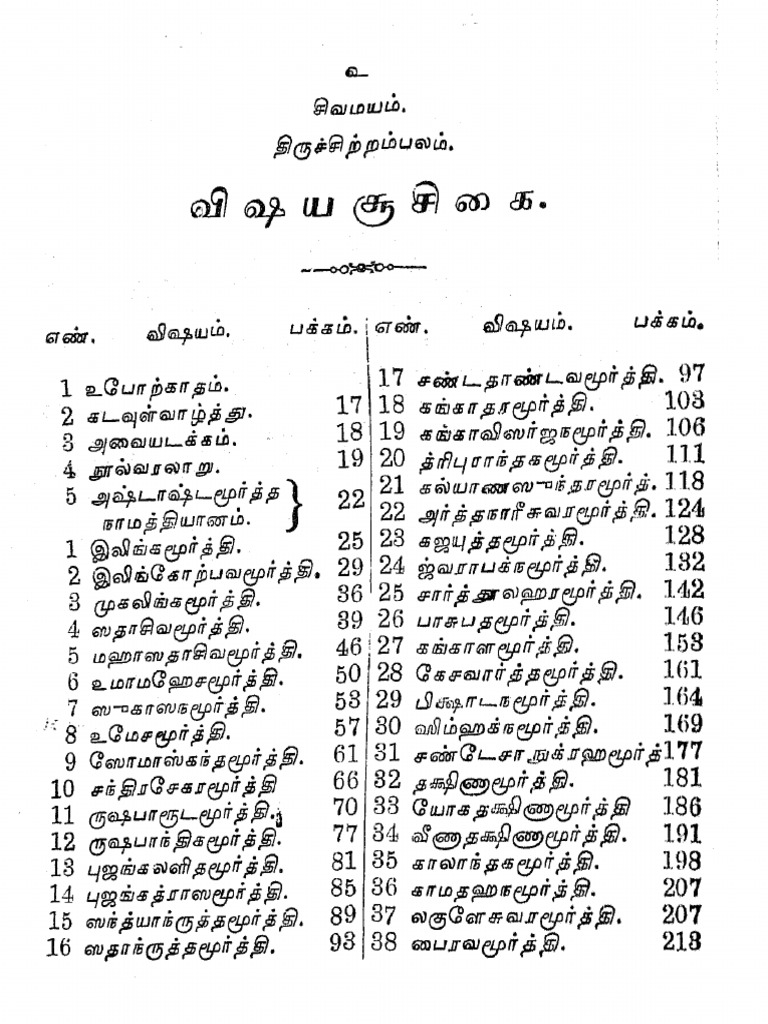 உ
சிவமயம்.
திருச்சிற்றம்பலம்.
விஷயசூசிகை.
எண். விஷயம். பக்கம்.
1 உபோற்காதம்.
2 கடவுள்வாழ்த்து. 17
3 அவையடக்கம். 18
4 நூல்வரலாறு. 19
5 அஷ்டாஷ்டமூர்த்த
நாமத்தியானம். } 22
1 இலிங்கமூர்த்தி. 25
2 இலிங்கோற்பவமூர்த்தி. 29
3 முகலிங்கமூர்த்தி. 36
4 ஸதாசிவமூர்த்தி. 39
5 மஹாஸதாசிவமூர்த்தி. 46
6 உமாமஹேசமூர்த்தி. 50
7 ஸுகாஸநமூர்த்தி. 53
8 உமேசமூர்த்தி. 57
9 ஸோமாஸ்கந்தமூர்த்தி. 61
10 சந்திரசேகரமூர்த்தி 66
11 ருஷபாரூடமூர்த்தி. 70
12 ருஷபாந்திகமூர்த்தி. 77
13 புஜங்கலளிதமூர்த்தி. 81
14 புஜங்கத்ராஸமூர்த்தி. 85
15 ஸந்த்யாந்ருத்தமூர்த்தி. 89
16 ஸதாந்ருத்தமூர்த்தி. 93
எண். விஷயம். பக்கம்.
17 சண்டதாண்டவமூர்த்தி. 97
18 கங்காதரமூர்த்தி. 103
19 கங்காவிஸர்ஜநமூர்த்தி. 106
20 த்ரிபுராந்தகமூர்த்தி. 111
21 கல்யாணஸுந்தரமூர்த். 118
22 அர்த்தநாரீசுவரமூர்த்தி. 124
23 கஜயுத்தமூர்த்தி. 128
24 ஜ்வராபக்நமூர்த்தி. 132
25 சார்த்தூலஹரமூர்த்தி. 142
26 பாசுபதமூர்த்தி. 146
27 கங்காளமூர்த்தி. 153
28 கேசவார்த்தமூர்த்தி. 161
29 பிக்ஷாடநமூர்த்தி. 164
30 ஸிம்ஹக்நமூர்த்தி. 169
31 சண்டேசாநுக்ரஹமூர்த் 177
32 தக்ஷிணாமூர்த்தி. 181
33 யோகதக்ஷிணாமூர்த்தி 186
34 வீணாதக்ஷிணாமூர்த்தி. 191
35 காலாந்தகமூர்த்தி. 198
36 காமதஹநமூர்த்தி. 207
37 லகுளேசுவரமூர்த்தி. 207
38 பைரவமூர்த்தி. 213